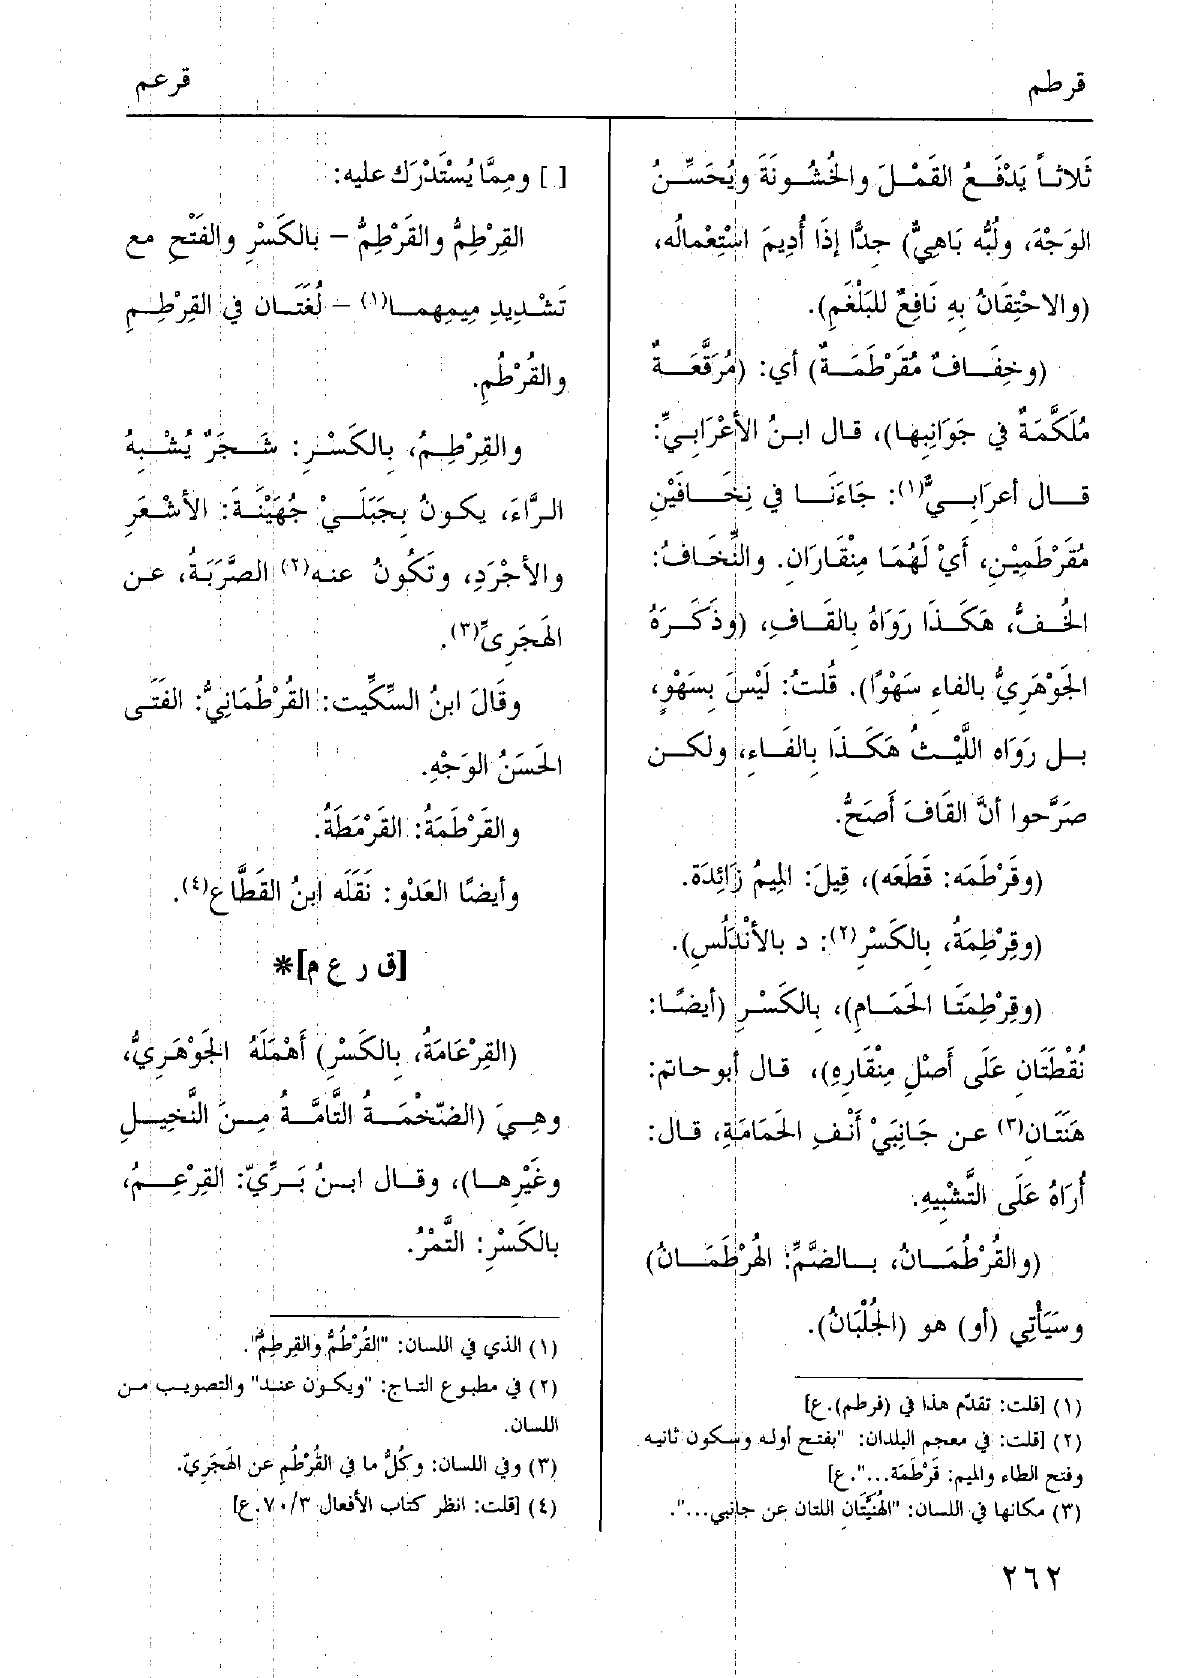 قرطم
قرعم
ثَلاثاً يَدْفَعُ القَمْلَ والخُشُونَةَ ويُحَسِّنُ
الوَجْهَ، ولُبُّه بَاهِيٌّ) جِدًّا إذَا أُدِيمَ اسْتِعْمالُه،
(والاحْتِقَانُ بِهِ نَافِعٌ للبَلْغَمِ).
(وخِفَافٌ مُقَرْطَمَةٌ) أي: (مُرَقَّعَةٌ
مُلَكَّمَةٌ في جَوَانِبِها)، قال ابنُ الأعْرَابِيِّ:
قال أعرَابِيٌّ(١): جَاءَنَا في نِخَافَيْنِ
مُقَرْطَمَيْنِ، أَيْ لَهُمَا مِنْقَارَانِ. والنِّخَافُ:
الخُفُّ، هَكَذَا رَوَاهُ بِالقَافِ، (وذَكَرَهُ
الجَوْهَرِيُّ بالفاءِ سَهْوًا). قُلتُ: لَيْسَ بِسَهْوٍ،
بل رَوَاه اللَّيْثُ هَكَذَا بِالفَاءِ، ولكن
صَرَّحوا أنَّ القَافَ أَصَحُّ.
(وقَرْطَمَه: قَطَعَه)، قِيلَ: المِيمُ زَائِدَة.
(وقِرْطِمَةُ، بِالكَسْرِ(٢): د بالأَنْدَلُسِ).
(وقِرْطِمَتَا الحَمَامِ)، بِالكَسْرِ (أيضًا:
نُقْطَتَانِ عَلَى أَصْلِ مِنْقَارِهِ)، قال أبو حاتم:
هَنَتَان(٣) عن جَانِبَيْ أَنْفِ الحَمَامَةِ، قال:
أُرَاهُ عَلَى التَّشْبِيهِ.
(والقُرْطُمَانُ، بِالضَّمِّ: الهُرْطَمَانُ)
وسَيَأْتِي (أو) هو (الجُلْبَانُ).
(١) [قلت: تقدّم هذا في (فرطم).ع]
(٢) [قلت: في معجم البلدان: "بفتح أوله وسكون ثانيه
وفتح الطاء والميم: قَرْطَمَة...".ع]
(٣) مكانها في اللسان: "الهُنَيَّتَانِ اللتان عن جانبي...".
[ ] ومِمَّا يُسْتَدْرَك عليه:
القِرْطِمُّ والقَرْطِمُّ – بالكَسْرِ والفَتْحِ مع
تَشْدِيدِ مِيمِهما(١) – لُغَتَان في القِرْطِمِ
والقُرْطُمِ.
والقِرْطِمُ، بِالكَسْرِ: شَجَرٌ يُشْبِهُ
الرَّاءَ، يكونُ بِجَبَلَيْ جُهَيْنَةَ: الأشْعَرِ
والأجْرَدِ، وتَكُونُ عنه(٢) الصَّرَبَةُ، عن
الهَجَرِىِّ(٣).
وقَالَ ابنُ السكِّيت: القُرْطُمَانِيُّ: الفَتَى
الحَسَنُ الوَجْهِ.
والقَرْطَمَةُ: القَرْمَطَةُ.
وأيضًا العَدْو: نَقَلَه ابنُ القَطَّاعِ(٤).
[ق ر ع م]*
(القِرْعَامَةُ، بِالكَسْرِ) أَهْمَلَهُ الجَوْهَرِيُّ،
وهِيَ (الضَّخْمَةُ التَّامَّةُ مِنَ النَّخِيلِ
وغَيْرِها)، وقال ابنُ بَرِّيّ: القِرْعِمُ،
بالكَسْرِ: التَّمْرُ.
(١) الذي في اللسان: "القُرْطُمُّ والقِرطِمُّ".
(٢) في مطبوع التاج: "ويكون عند" والتصويب من
اللسان.
(٣) وفي اللسان: وكُلُّ ما في القُرْطُمِ عن الهَجَرِيّ.
(٤) [قلت: انظر كتاب الأفعال ٧٠/٣.ع]
٢٦٢